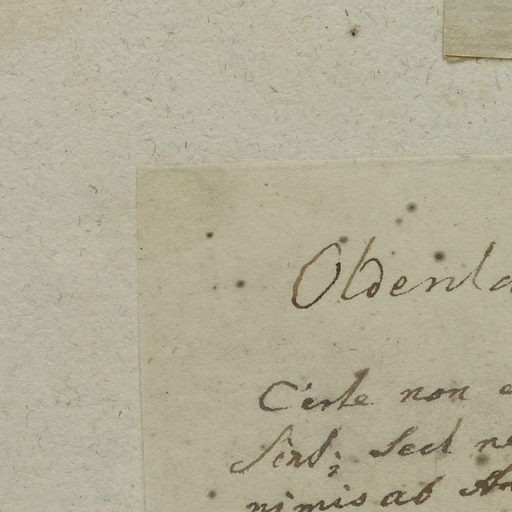 Oldenla
Certe non e
sed ne
nimis ab A